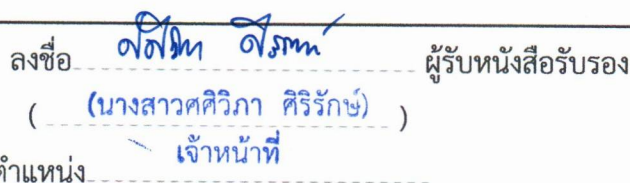 ลงชื่อ ศศิวิภา ศิริรักษ์ ผู้รับหนังสือรับรอง
( (นางสาวศศิวิภา ศิริรักษ์) )
ตำแหน่ง เจ้าหน้าที่